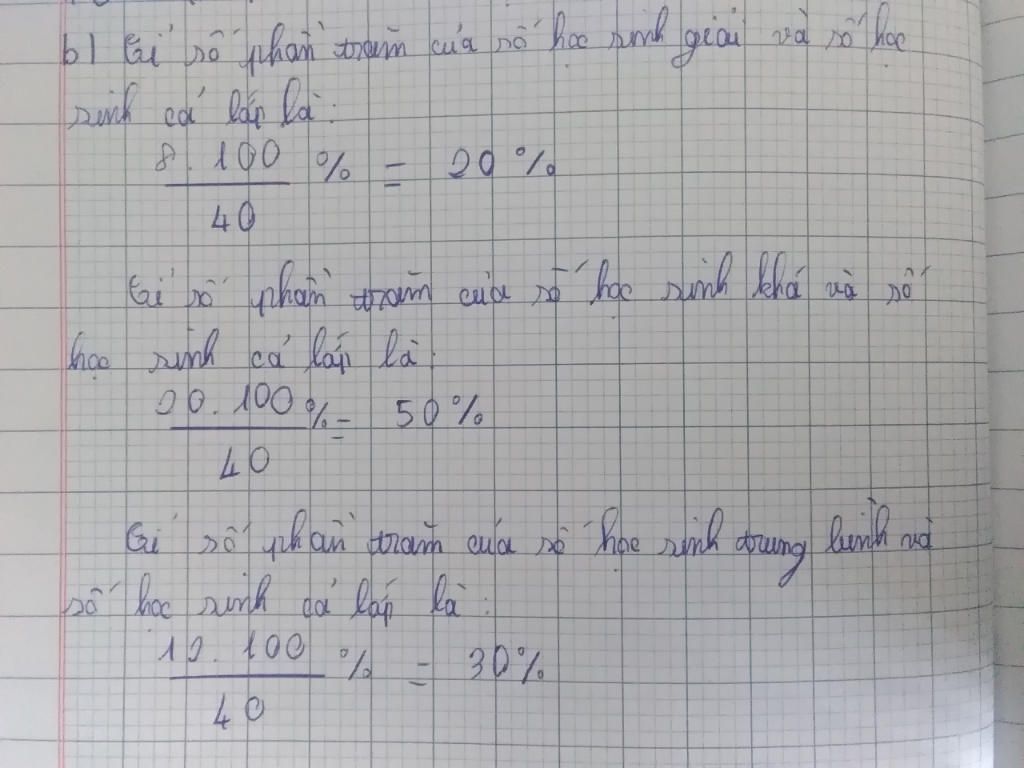 b) Tỉ số phần trăm của số học sinh giỏi và số học
sinh cả lớp là:
8.100 % = 20%
40
Tỉ số phần trăm của số học sinh khá và số
học sinh cả lớp là:
20.100 % = 50%
40
Tỉ số phần trăm của số học sinh trung bình và
số học sinh cả lớp là:
12.100 % = 30%
40